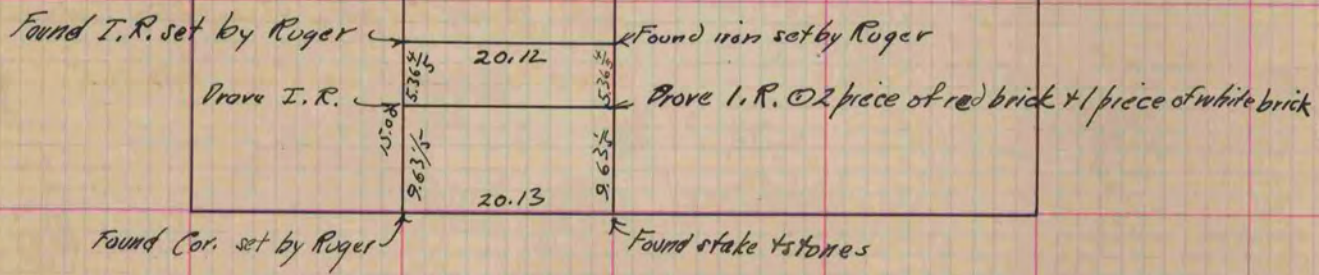 Found I.R. set by Ruger
Found iron set by Ruger
20.12
5.36 4/5
5.36 4/5
Drove I.R.
Drove I.R. ⊙ 2 piece of red brick + 1 piece of white brick
15.00
9.63 1/5
9.63 1/5
20.13
Found Cor. set by Ruger
Found stake + stones